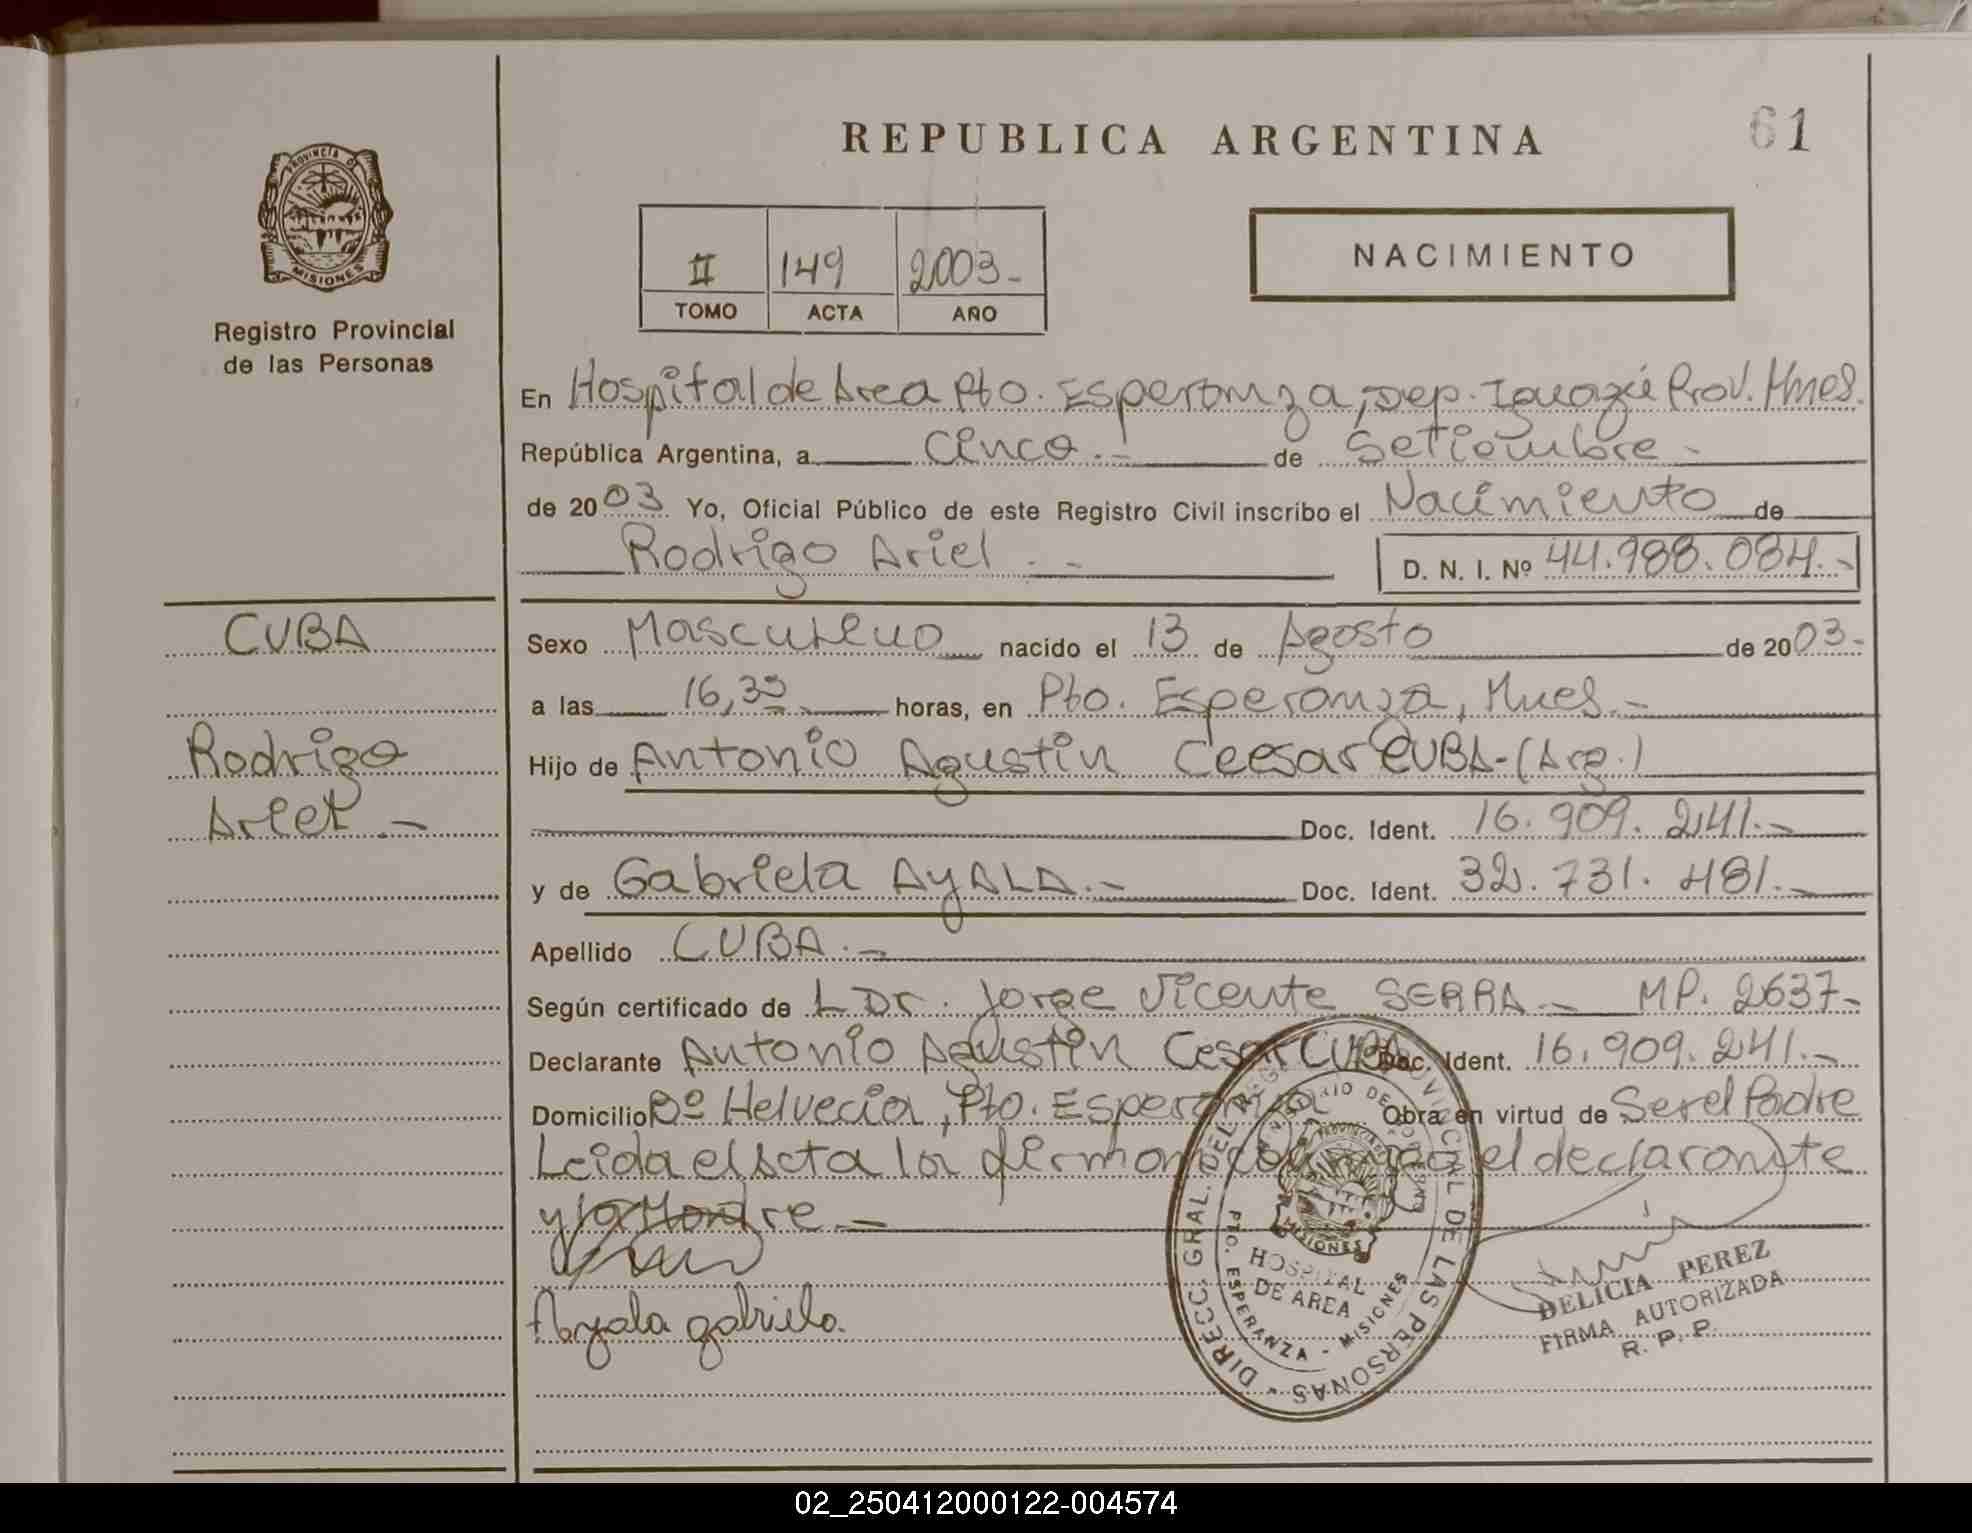 REPUBLICA ARGENTINA
61
PROVINCIA DE
MISIONES
Registro Provincial
de las Personas
II 149 2003-
TOMO ACTA AÑO
NACIMIENTO
En Hospital de Area Pto. Esperanza, Dep. Iguazú Prov. Mnes.
República Argentina, a cinco.- de Setiembre-
de 2003 Yo, Oficial Público de este Registro Civil inscribo el Nacimiento de
Rodrigo Ariel.- D. N. I. Nº 44.988.084.-
CUBA
Rodrigo
Ariel-
Sexo Masculino nacido el 13 de Agosto de 2003-
a las 16,35 horas, en Pto. Esperanza, Mnes.-
Hijo de Antonio Agustin Ceesar CUBA-(Arg.)
Doc. Ident. 16.909.241.-
y de Gabriela AyALA.- Doc. Ident. 32.731.481.-
Apellido CUBA.-
Según certificado de L Dr. Jorge Vicente SERRA- MP. 2637-
Declarante Antonio Agustin Cesar CUBA Doc. Ident. 16.909.241.-
Domicilio Bº Helvecia, Pto. Esperanza Obra en virtud de Ser el Padre
Leida el Acta la firman conmigo el declarante
y la Madre-
Ayala gabriela.
DIRECC. GRAL. DEL REGISTRO PROVINCIAL DE LAS PERSONAS
MINISTERIO DE GOBIERNO
PROVINCIA DE
MISIONES
HOSPITAL
DE AREA
PTO. ESPERANZA - MISIONES
DELICIA PEREZ
FIRMA AUTORIZADA
R. P. P.
02_250412000122-004574